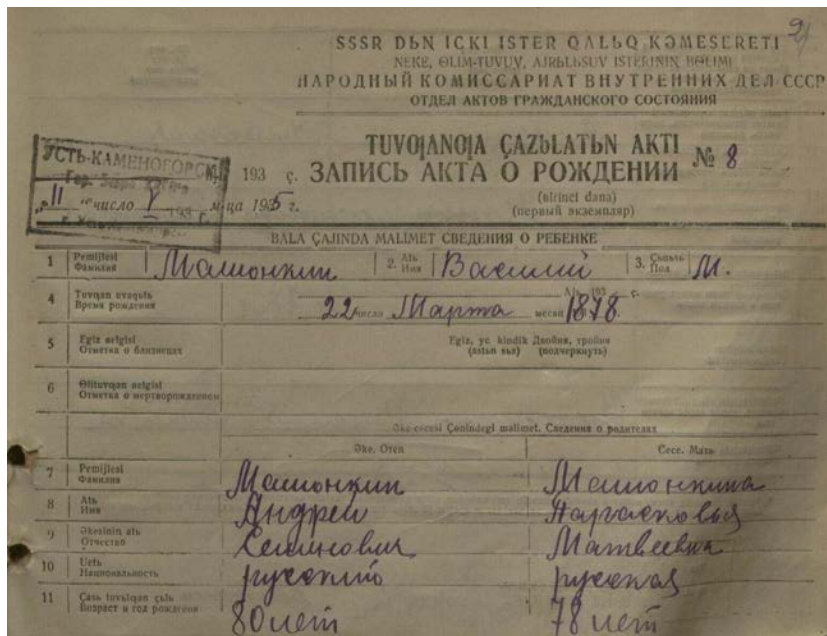 9
SSSR DЬN ICKI ISTER QALЬQ KƏMESERETI
NEKE, ӨLIM-TUVUV, AJRЬLЬSUV ISTERININ BӨLIMI
НАРОДНЫЙ КОМИССАРИАТ ВНУТРЕННИХ ДЕЛ СССР
ОТДЕЛ АКТОВ ГРАЖДАНСКОГО СОСТОЯНИЯ
УСТЬ-КАМЕНОГОРСК
TUVOJANOJA ÇAZЬLATЬN AKTI
193 ç. ЗАПИСЬ АКТА О РОЖДЕНИИ № 8
„11“ число V м-ца 1935 г.
(birinci dana)
(первый экземпляр)
BALA ÇAJINDA MALIMET СВЕДЕНИЯ О РЕБЕНКЕ
1 Pemijlesi Фамилия Машонкин 2. Atь Имя Василий 3. Çьnьsь Пол М.
4 Tuvqan uvaqьtь Время рождения 22 число Марта месяц 1878.
Ajь 193 ç.
5 Egiz вelgisi Отметка о близнецах
Egiz, yc kindik Двойня, тройня
(astьn sьz) (подчеркнуть)
6 Өlituvqan вelgisi Отметка о мертворожденном
Əke-cecesi Çөnindegi malimet. Сведения о родителях
Əke. Отец Cece. Мать
7 Pemijlesi Фамилия Машонкин Машонкина
8 Atь Имя Андрей
9 Əkesinin atь Отчество Семинович Матвеевна
10 Uctь Национальность русский русская
11 Çasь tuvьlqan çьlь Возраст и год рождения 80 лет 78 лет